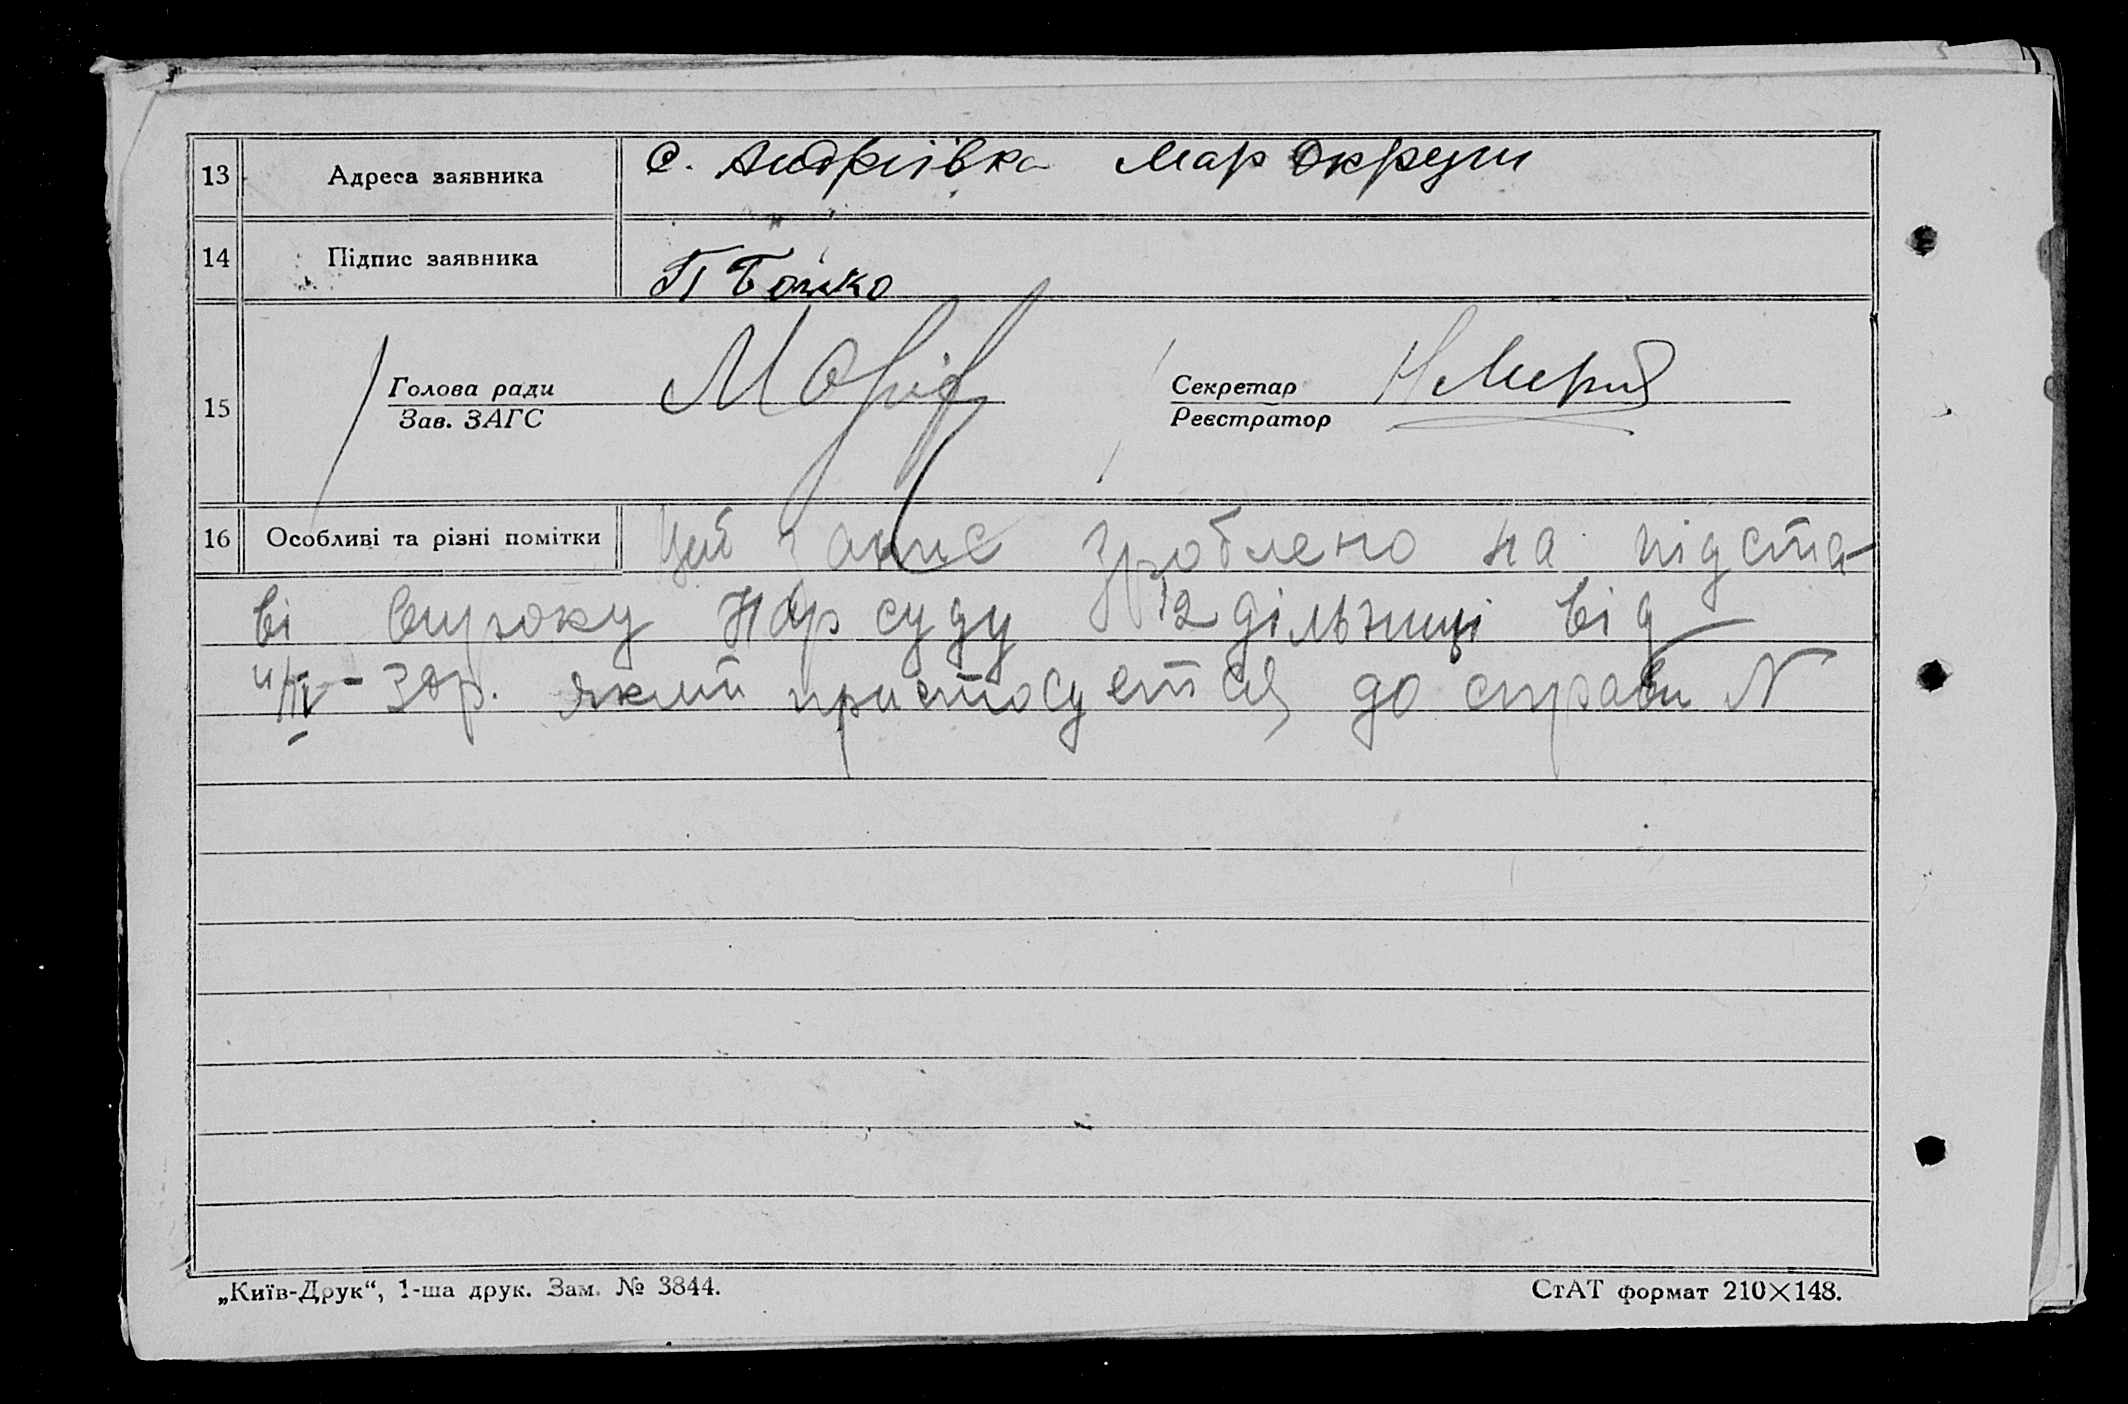 13 Адреса заявника С. Андріївка Мар Округи
14 Підпис заявника П Бойко
15 Голова ради Секретар
Зав. ЗАГС Реєстратор
16 Особливі та різні помітки Цей запис зроблено на підста-
ві вироку Нар суду 12 дільниці від
30р. який пристосуется до справи N
„Київ-Друк“, 1-ша друк. Зам. № 3844. СтАТ формат 210×148.